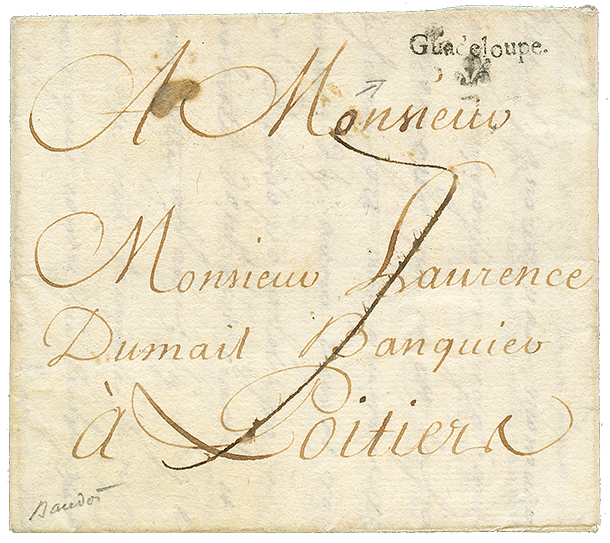 Guadeloupe.
A Monsieur
Monsieur Laurence
Dumail Banquier
à Poitiers